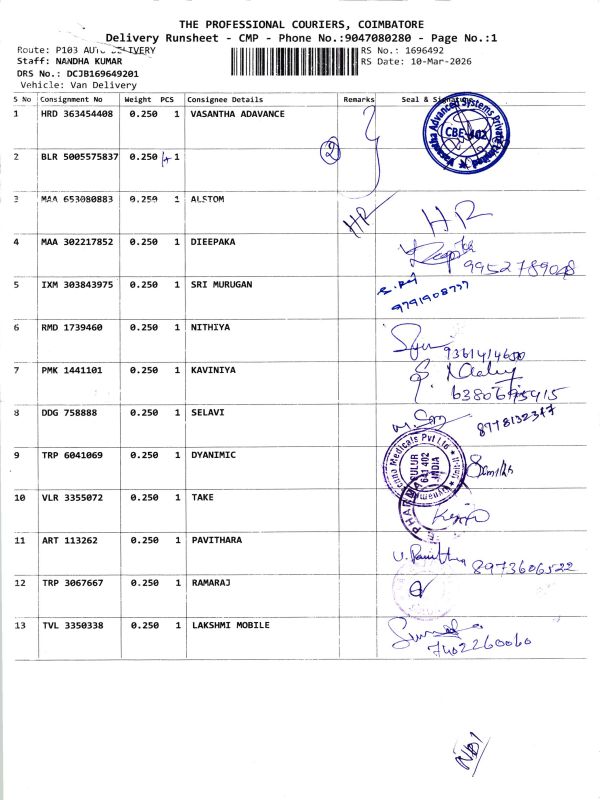 THE PROFESSIONAL COURIERS, COIMBATORE
Delivery Runsheet - CMP - Phone No.:9047080280 - Page No.:1
Route: P103 AUTO DELIVERY
RS No.: 1696492
Staff: NANDHA KUMAR
RS Date: 10-Mar-2026
DRS No.: DCJB169649201
Vehicle: Van Delivery
S No Consignment No Weight PCS Consignee Details Remarks Seal & Signature
1 HRD 363454408 0.250 1 VASANTHA ADAVANCE
CBE-402
2 BLR 5005575837 0.250 1 2
3 MAA 653080883 0.250 1 ALSTOM HR HR
4 MAA 302217852 0.250 1 DIEEPAKA
9952789048
5 IXM 303843975 0.250 1 SRI MURUGAN
9791908777
6 RMD 1739460 0.250 1 NITHIYA
7 PMK 1441101 0.250 1 KAVINIYA
8 DDG 758888 0.250 1 SELAVI
8778132347
9 TRP 6041069 0.250 1 DYANIMIC
Medicals Pvt Ltd
SULUR
641 402
INDIA
PHARMA
10 VLR 3355072 0.250 1 TAKE
11 ART 113262 0.250 1 PAVITHARA
8973606522
12 TRP 3067667 0.250 1 RAMARAJ
13 TVL 3350338 0.250 1 LAKSHMI MOBILE
7402260060